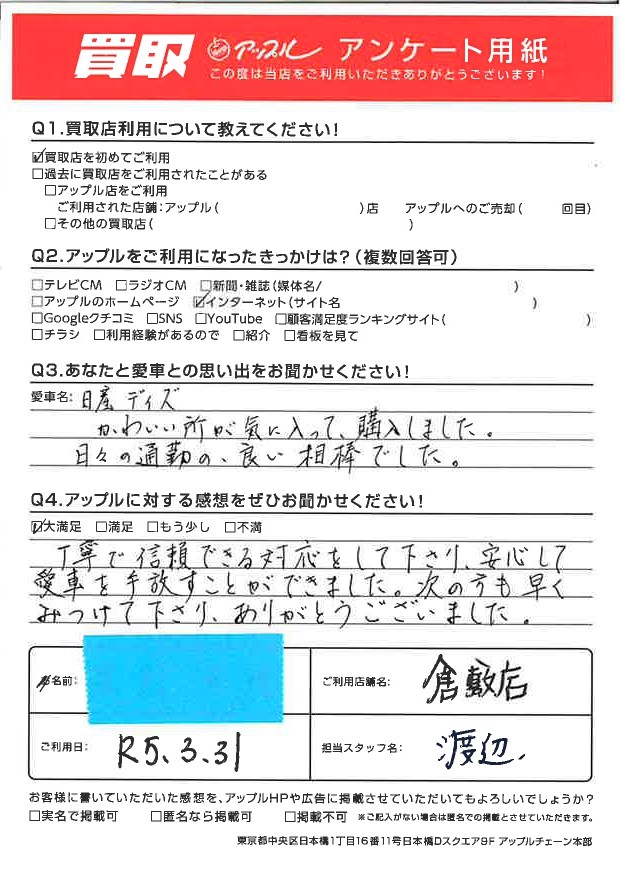 買取 アップル アンケート用紙
この度は当店をご利用いただきありがとうございます!
Q1.買取店利用について教えてください!
☑買取店を初めてご利用
□過去に買取店をご利用されたことがある
□アップル店をご利用
ご利用された店舗:アップル( )店 アップルへのご売却( 回目)
□その他の買取店( )
Q2.アップルをご利用になったきっかけは?(複数回答可)
□テレビCM □ラジオCM □新聞・雑誌(媒体名/ )
□アップルのホームページ ☑インターネット(サイト名 )
□Googleクチコミ □SNS □YouTube □顧客満足度ランキングサイト( )
□チラシ □利用経験があるので □紹介 □看板を見て
Q3.あなたと愛車との思い出をお聞かせください!
愛車名: 日産 デイズ
かわいい所が気に入って、購入しました。
日々の通勤の、良い相棒でした。
Q4.アップルに対する感想をぜひお聞かせください!
☑大満足 □満足 □もう少し □不満
丁寧で信頼できる対応をして下さり、安心して
愛車を手放すことができました。次の方も早く
みつけて下さり、ありがとうございました。
お名前:
ご利用店舗名: 倉敷店
ご利用日: R5.3.31
担当スタッフ名: 渡辺
お客様に書いていただいた感想を、アップルHPや広告に掲載させていただいてもよろしいでしょうか?
□実名で掲載可 □匿名なら掲載可 □掲載不可 ※ご記入がない場合は匿名での掲載とさせていただきます。
東京都中央区日本橋1丁目16番11号日本橋Dスクエア9F アップルチェーン本部